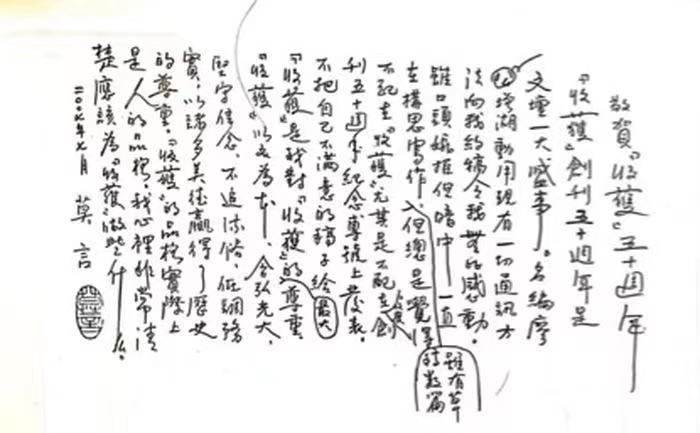 敬賀『收獲』五十週年
『收獲』創刊五十週年是
文壇一大盛事。名編廖
增湖動用現有一切通訊方
法向我約稿令我無比感動。
雖口頭婉推但暗中一直
在構思寫作，但總是覺得
雖有草稿數篇
不配在『收獲』尤其是不配在創
刊五十週年紀念專號上發表。
不把自己不滿意的稿子給
『收獲』是我對『收獲』的尊重
最大
『收獲』以文為本，含弘光大，
堅守信念，不追流俗，低調務
實，以諸多美德贏得了歷史
的尊重。『收獲』的品格實際上
是人的品格。我心裡非常清
楚應該為『收獲』做些什么。
年七月 莫言